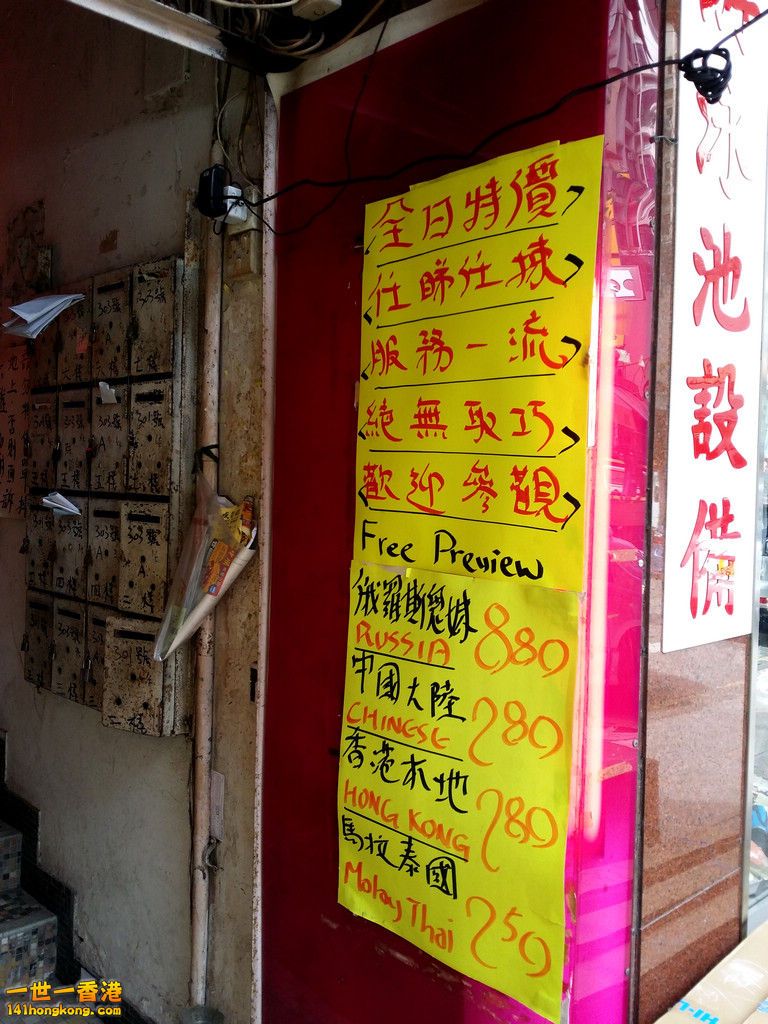 全日特價
任睇任揀
服務一流
絕無取巧
歡迎參觀
Free Preview
俄羅斯
RUSSIA 880
中國大陸
CHINESE 280
香港本地
HONG KONG 280
馬拉泰國
Malay Thai 250
泳池設備
303號
303號
301號
一世一香港
141hongkong.com